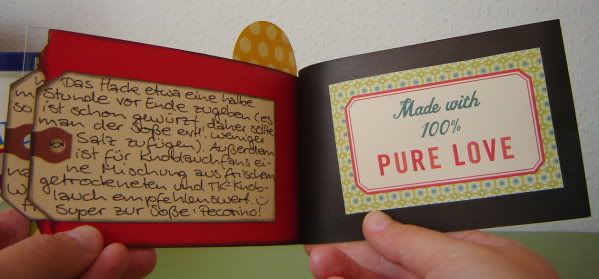 Das Hack etwa eine halbe
Stunde vor Ende zugeben (es
ist schon gewürzt, daher sollte
man der Soße evtl. weniger
Salz zufügen). Außerdem
ist für Knoblauchfans ei-
ne Mischung aus frischem,
getrockneten und TK-Knob-
lauch empfehlenswert. :)
Super zur Soße: Pecorino!
Made with
100%
PURE LOVE